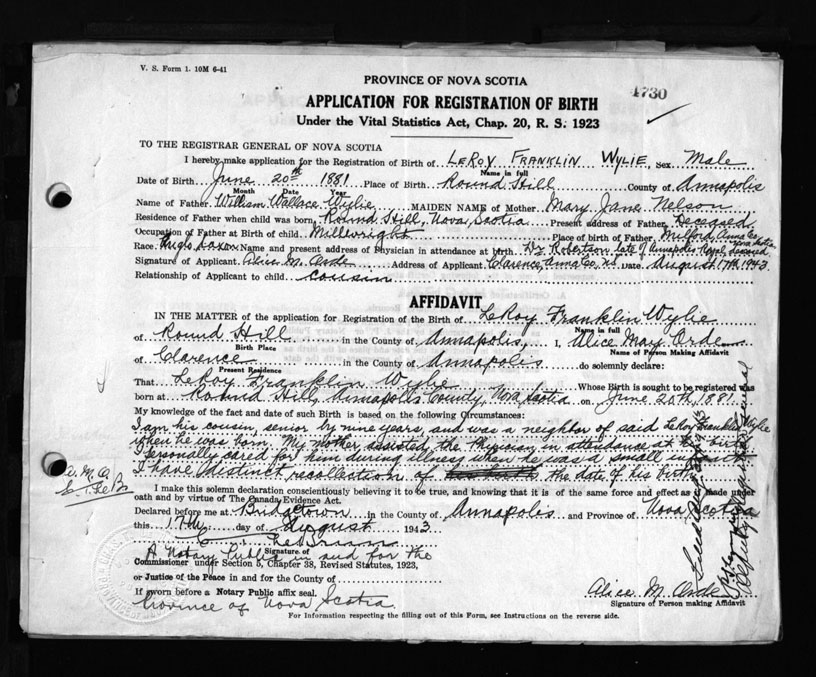 V. S. Form 1. 10M 6-41
PROVINCE OF NOVA SCOTIA
4730
APPLICATION FOR REGISTRATION OF BIRTH
Under the Vital Statistics Act, Chap. 20, R. S. 1923
TO THE REGISTRAR GENERAL OF NOVA SCOTIA
I hereby make application for the Registration of Birth of LeRoy Franklin Wylie, Sex Male
Name in full
Date of Birth June 20th 1881 Place of Birth Round Hill County of Annapolis
Month Date Year
Name of Father William Wallace Wylie MAIDEN NAME of Mother Mary Jane Nelson
Residence of Father when child was born, Round Hill, Nova Scotia Present address of Father, Deceased
Occupation of Father at Birth of child Millwright Place of birth of Father Milford, Anna Co. Nova Scotia
Race Anglo Saxon Name and present address of Physician in attendance at birth Dr Robertson late of Annapolis Royal, deceased
Signature of Applicant Alice M. Orde Address of Applicant Clarence, Anna Co. N.S. Date August 17th 1943
Relationship of Applicant to child cousin
AFFIDAVIT
IN THE MATTER of the application for Registration of the Birth of LeRoy Franklin Wylie
Name in full
of Round Hill in the County of Annapolis, I, Alice May Orde
Birth Place Name of Person Making Affidavit
of Clarence in the County of Annapolis do solemnly declare:
Present Residence
That LeRoy Franklin Wylie Whose Birth is sought to be registered was
born at Round Hill, Annapolis County, Nova Scotia on June 20th, 1881
My knowledge of the fact and date of such Birth is based on the following Circumstances:
I am his cousin, senior by nine years, and was a neighbor of said LeRoy Franklin Wylie
when he was born. My mother assisted the Physician in attendance at his birth
I personally cared for him during illness when he was a small infant
I have distinct recollection of his birth the date of his birth
A. M. O.
I make this solemn declaration conscientiously believing it to be true, and knowing that it is of the same force and effect as if made under
oath and by virtue of The Canada Evidence Act.
Declared before me at Bridgetown in the County of Annapolis and Province of Nova Scotia
this 17th day of August 1943
Signature of
A Notary Public in and for the
Commissioner under Section 5, Chapter 38, Revised Statutes, 1923,
or Justice of the Peace in and for the County of
If sworn before a Notary Public affix seal.
Province of Nova Scotia
Alice M. Orde
Signature of Person making Affidavit
For Information respecting the filling out of this Form, see Instructions on the reverse side.
Deputy Registrar General